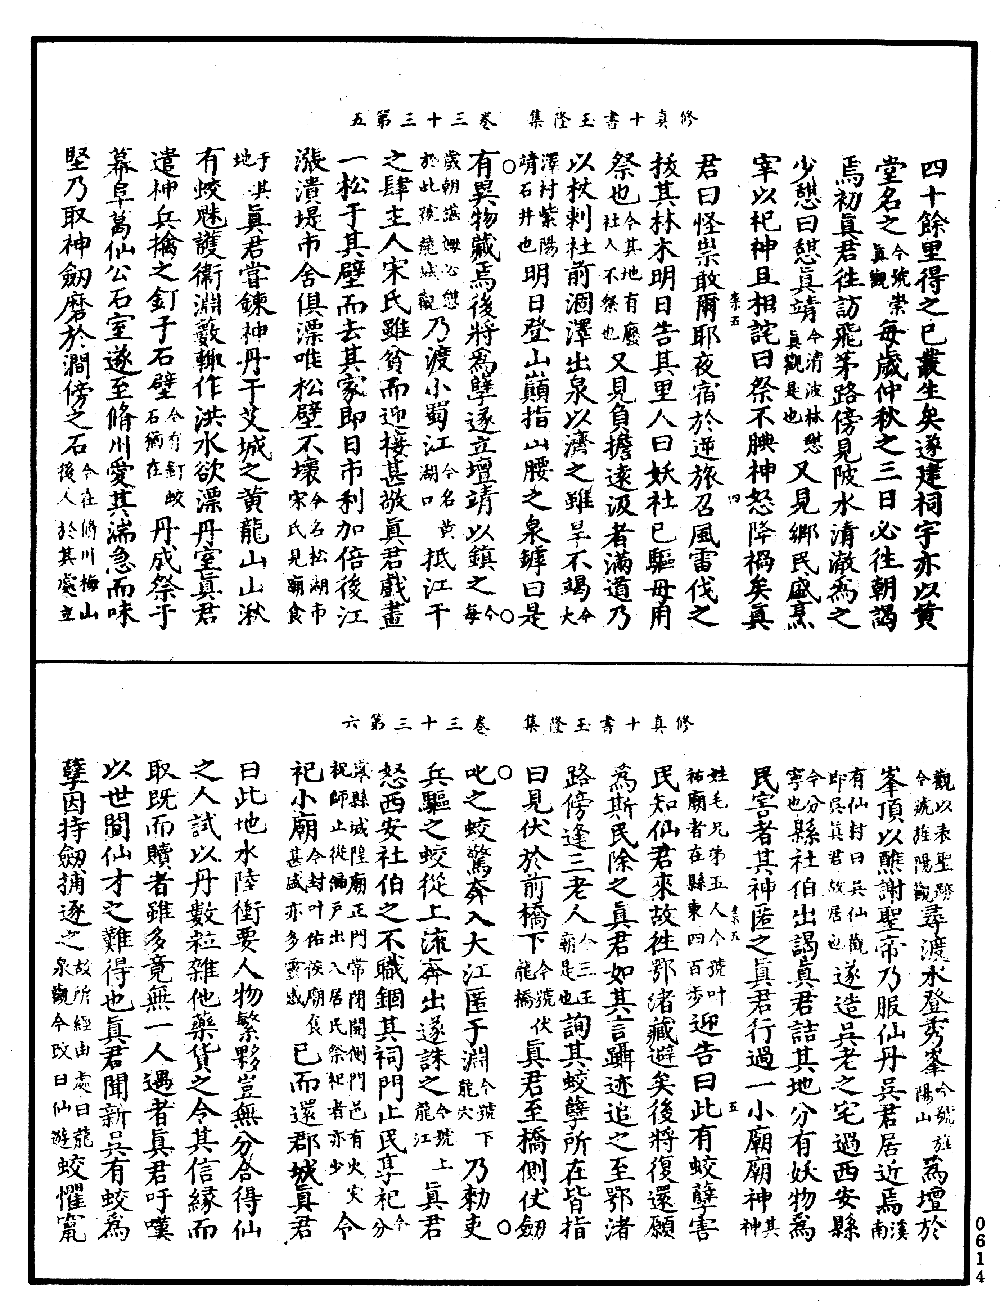 修真十書玉隆集　卷三十三第五
四十餘里得之已叢生矣遂建祠宇亦以黃
堂名之今號崇真觀每歲仲秋之三日必往朝謁
焉初真君往訪飛茅路傍見陂水清澈為之
少憇曰憇真靖今清波林憇真觀是也又見鄉民盛烹
宰以祀神且相詫曰祭不腆神怒降禍矣真
君曰怪祟敢爾耶夜宿於逆旅召風雷伐之
拔其林木明日告其里人曰妖社已驅毋用
祭也今其地有廢社人不祭也又見負擔遠汲者滿道乃
以杖刺社前涸澤出泉以濟之雖旱不竭今大
澤村紫陽靖石井也明日登山巔指山腰之泉罅曰是
有異物藏焉後將為孽遂立壇靖以鎮之今每
歲朝謁必憇於此號慈城觀乃渡小蜀江今名黃湖口抵江干
之肆主人宋氏雖貧而迎接甚敬真君戲畫
一松于其壁而去其家即日市利加倍後江
漲潰堤市舍俱漂唯松壁不壞今名松湖市宋氏見廟食
于其地真君嘗鍊神丹于艾城之黃龍山山湫
有蛟魅護衛淵藪輙作洪水欲漂丹室真君
遣神兵擒之釘于石壁今有釘蛟石猶在丹成祭于
幕阜葛仙公石室遂至脩川愛其湍急而味
堅乃取神劒磨於澗傍之石今在脩川梅山後人於其處立
修真十書玉隆集　卷三十三第六
觀以表聖跡今號旌陽觀尋渡水登秀峯今號旌陽山為壇於
峯頂以醮謝聖帝乃服仙丹吳君居近焉溪南
有仙村曰吳仙觀即吳真君故居也遂造吳老之宅過西安縣
今分寧也縣社伯出謁真君詰其地分有妖物為
民害者其神匿之真君行過一小廟廟神其神
姓毛兄弟五人今號叶祐廟者在縣東四百步迎告曰此有蛟孽害
民知仙君來故徃鄂渚藏避矣後將復還願
為斯民除之真君如其言躡迹追之至鄂渚
路傍逢三老人今三王廟是也詢其蛟孽所在皆指
曰見伏於前橋下今號伏龍橋真君至橋側伏劒
叱之蛟驚奔入大江匿于淵今號下龍穴乃勑吏
兵驅之蛟從上流奔出遂誅之今號上龍江真君
怒西安社伯之不職錮其祠門止民享祀今分
寧縣城隍廟正門常閉開側門邑有火災祝師止從偏戶出入居民祭祀者亦少令
祀小廟今封叶佑侯廟食甚盛亦多靈感已而還郡城真君
曰此地水陸衝要人物繁夥豈無分合得仙
之人試以丹數粒雜他藥貨之令其信緣而
取既而贖者雖多竟無一人遇者真君吁嘆
以世間仙才之難得也真君聞新吳有蛟為
孽因持劒捕逐之故所經由處曰龍泉觀今改曰仙遊蛟懼竄
0614